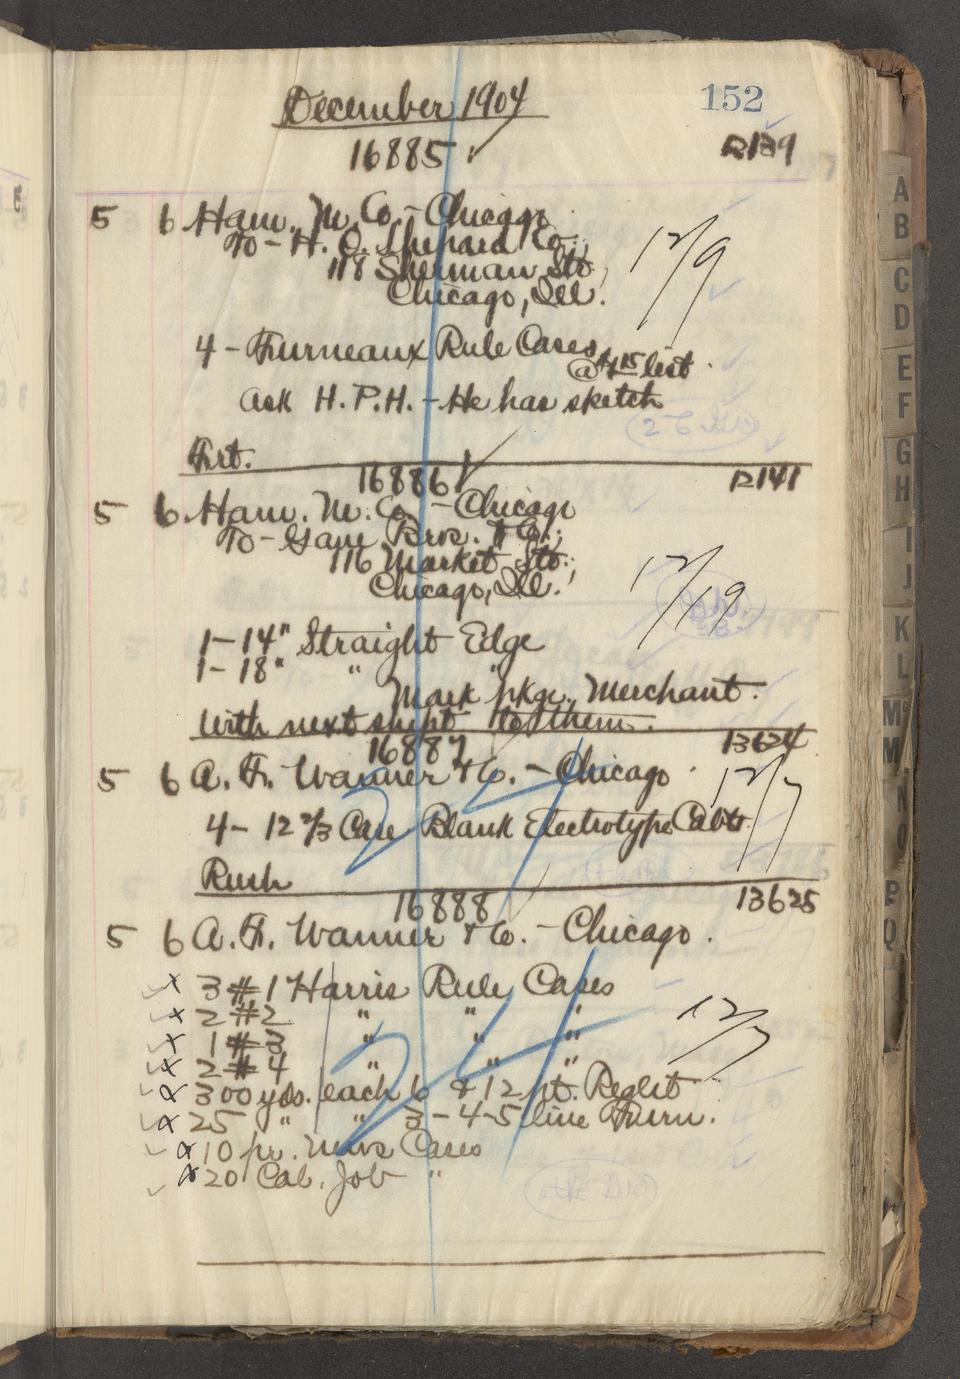 December 1904
152
16885
R139
5 6 Ham. M. Co. - Chicago
To - H. O. Shepard Co.,
118 Sherman St.,
Chicago, Ill.
12/9
4 - Furneaux Rule Cases
@ $4.15 list.
Ask H.P.H. - He has sketch
Frt.
16886
R141
5 6 Ham. M. Co. - Chicago
To - Gane Bros. & Co.,
116 Market St.,
Chicago, Ill.
12/19
1 - 14" Straight Edge
1 - 18" " "
Mark pkge. Merchant.
With next shipt to them.
16887
13624
5 6 A. F. Wanner & Co. - Chicago
12/7
4 - 12 2/3 Case Blank Electrotype Cabts.
Rush
24
16888
13625
5 6 A. F. Wanner & Co. - Chicago.
x 3 #1 Harris Rule Cases
x 2 #2 " " "
12/7
x 1 #3 " " "
x 2 #4 " " "
x 300 yds. each 6 & 12 pt. Reglet
x 25 " " 3-4-5 line Furn.
x 10 pr. News Cases
x 20 Cab. Job "
24
A
B
C
D
E
F
G
H
I
J
K
L
M
N
O
P
Q